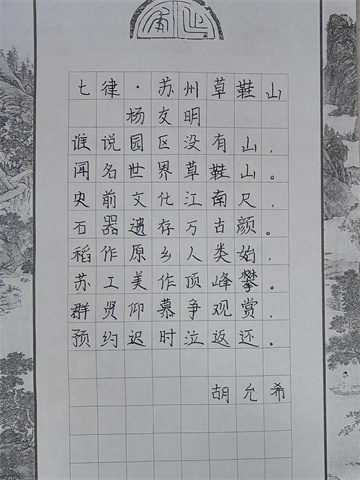 七律·苏州草鞋山
杨文明
谁说园区没有山，
闻名世界草鞋山。
史前文化江南尺，
石器遗存万古颜。
稻作原乡人类始，
苏工美作顶峰攀。
群贤仰慕争观赏，
预约迟时泣返还。
胡允希